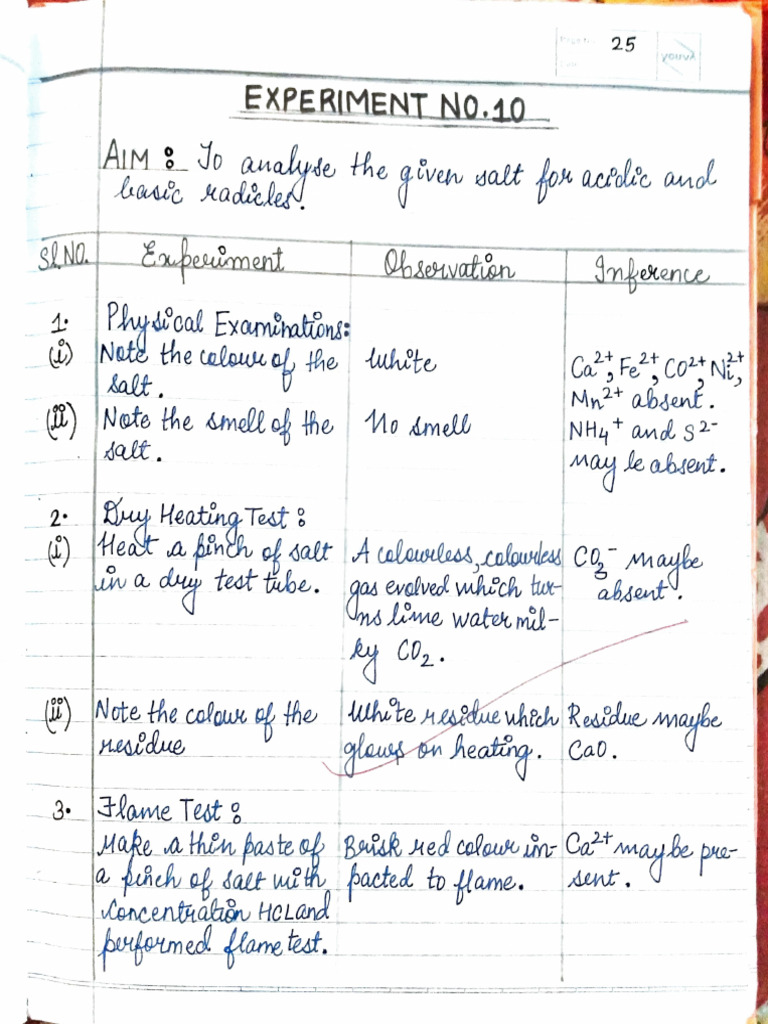 25
YOUVA
EXPERIMENT NO.10
AIM : To analyse the given salt for acidic and
basic radicles.
Sl.NO. Experiment Observation Inference
1. Physical Examinations:
(i) Note the colour of the salt. White Ca2+, Fe2+, CO2+, Ni2+, Mn2+ absent.
(ii) Note the smell of the salt. No smell NH4+ and S2- may be absent.
2. Dry Heating Test :
(i) Heat a pinch of salt A colourless, colourless CO3- maybe
in a dry test tube. gas evolved which tur- absent.
ns lime water mil-
ky CO2.
(ii) Note the colour of the White residue which Residue maybe
residue glows on heating. CaO.
3. Flame Test :
Make a thin paste of Brisk red colour im- Ca2+ may be pre-
a pinch of salt with pacted to flame. sent.
concentration HCL and
performed flame test.